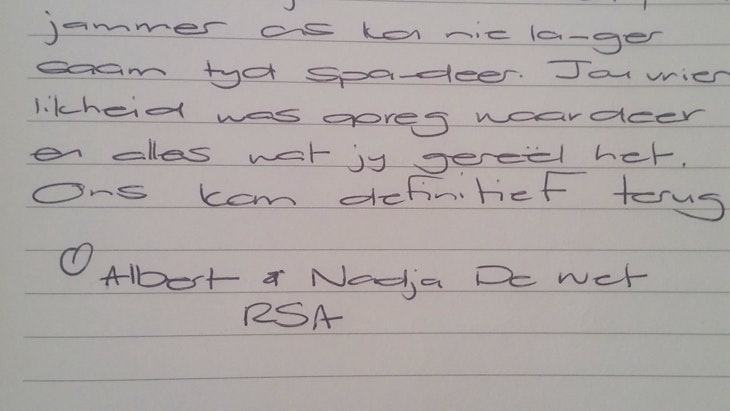 jammer ons kon nie langer
saam tyd spandeer. Jou vrien
likheid was opreg waardeer
en alles wat jy gereël het.
Ons kom definitief terug
Albert & Nadja De Wet
RSA